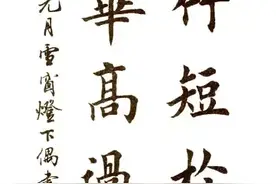 短於
華高過
月雪窗燈下偶書